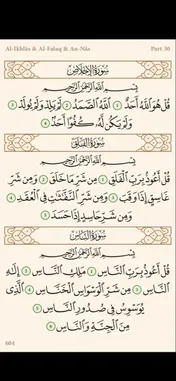 Al-Ikhlâs & Al-Falaq & An-Nâs Part 30
سُورَةُ الإِخْلَاصِ
بِسْمِ اللَّهِ الرَّحْمَٰنِ الرَّحِيمِ
قُلْ هُوَ اللَّهُ أَحَدٌ 1 اللَّهُ الصَّمَدُ 2 لَمْ يَلِدْ وَلَمْ يُولَدْ 3
وَلَمْ يَكُن لَّهُ كُفُوًا أَحَدٌ 4
سُورَةُ الفَلَقِ
بِسْمِ اللَّهِ الرَّحْمَٰنِ الرَّحِيمِ
قُلْ أَعُوذُ بِرَبِّ الْفَلَقِ 1 مِن شَرِّ مَا خَلَقَ 2 وَمِن شَرِّ
غَاسِقٍ إِذَا وَقَبَ 3 وَمِن شَرِّ النَّفَّاثَاتِ فِي الْعُقَدِ 4
وَمِن شَرِّ حَاسِدٍ إِذَا حَسَدَ 5
سُورَةُ النَّاسِ
بِسْمِ اللَّهِ الرَّحْمَٰنِ الرَّحِيمِ
قُلْ أَعُوذُ بِرَبِّ النَّاسِ 1 مَلِكِ النَّاسِ 2 إِلَٰهِ
النَّاسِ 3 مِن شَرِّ الْوَسْوَاسِ الْخَنَّاسِ 4 الَّذِي
يُوَسْوِسُ فِي صُدُورِ النَّاسِ 5
مِنَ الْجِنَّةِ وَالنَّاسِ 6
604